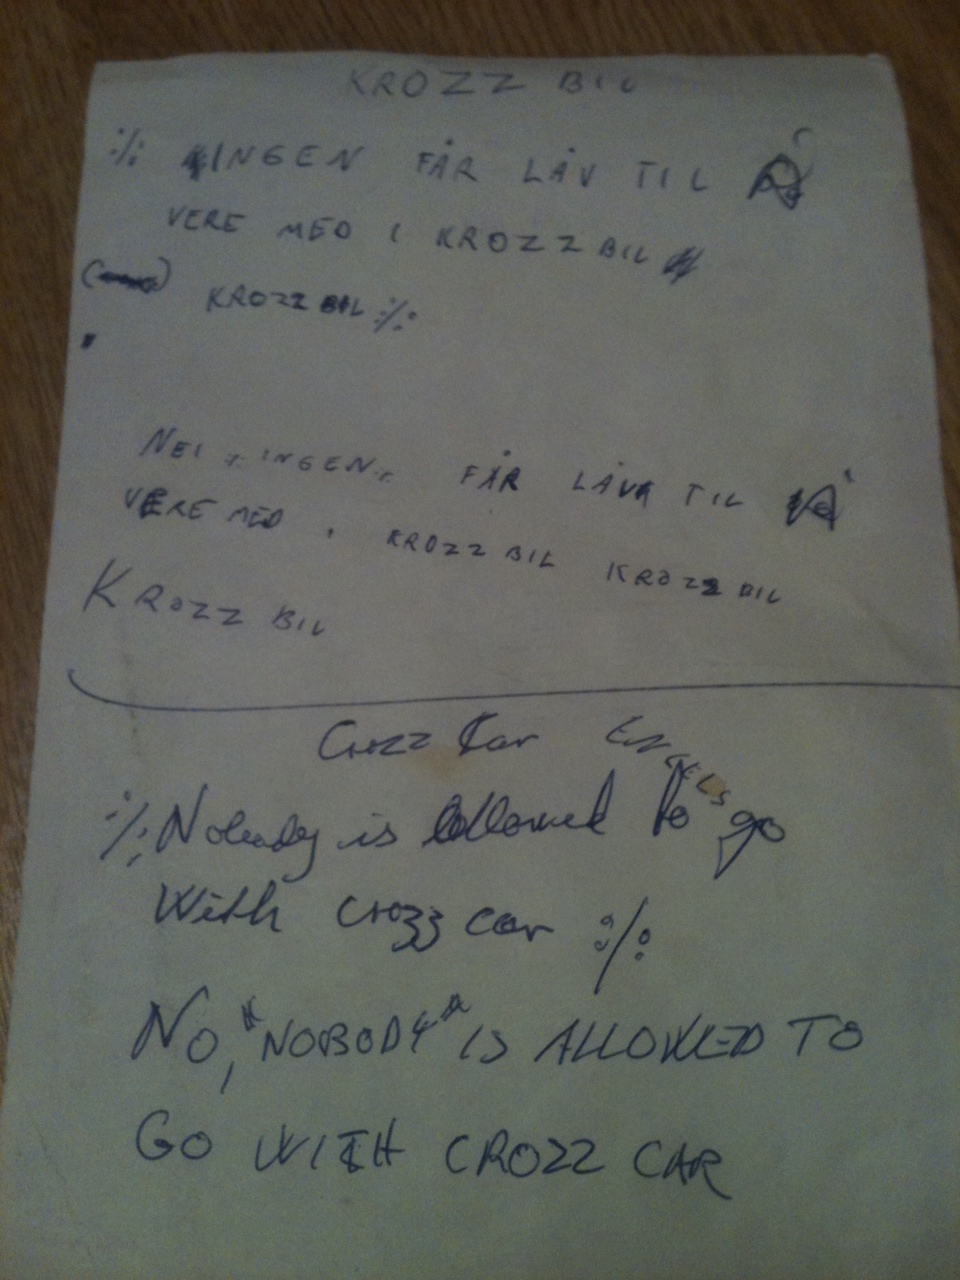 KROZZ BIL
:/: INGEN FÅR LÅV TIL Å
VERE MED I KROZZ BIL
KROZZ BIL :/:
NEI, INGEN FÅR LÅV TIL Å
VERE MED I KROZZ BIL KROZZ BIL
KROZZ BIL
Crozz Car ENGELS
:/: Nobody is allowed to go
With crozz car :/:
NO, "NOBODY" IS ALLOWED TO
GO WITH CROZZ CAR